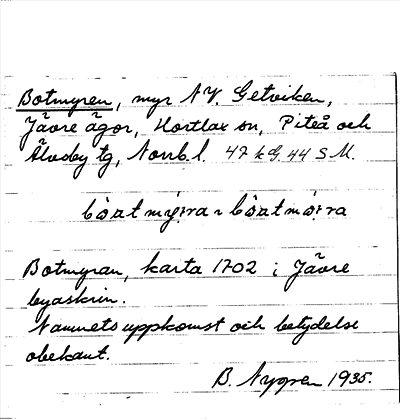 Botmyren, myr NV. Getviken,
Jävre ägor, Hortlax sn, Piteå och
Älvsby tg, Norrb. l. 47 k G. 44 S M.
Botmyran, karta 1702 i Jävre
byaskrin.
Namnets uppkomst och betydelse
obekant.
B. Nygren 1935.